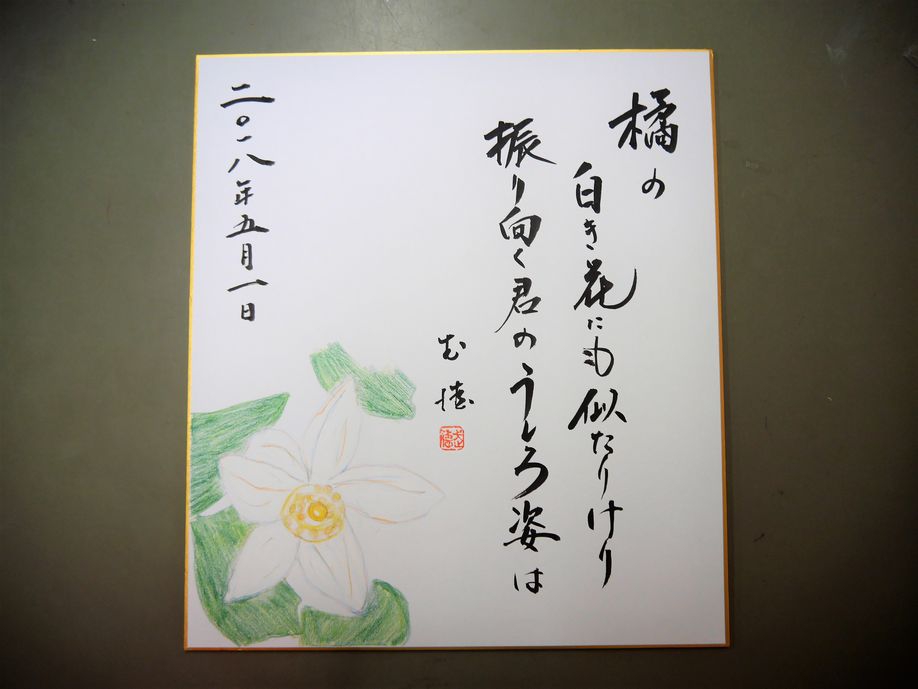 橘の
白き花にも似たりけり
振り向く君のうしろ姿は
武徳
二〇一八年五月一日